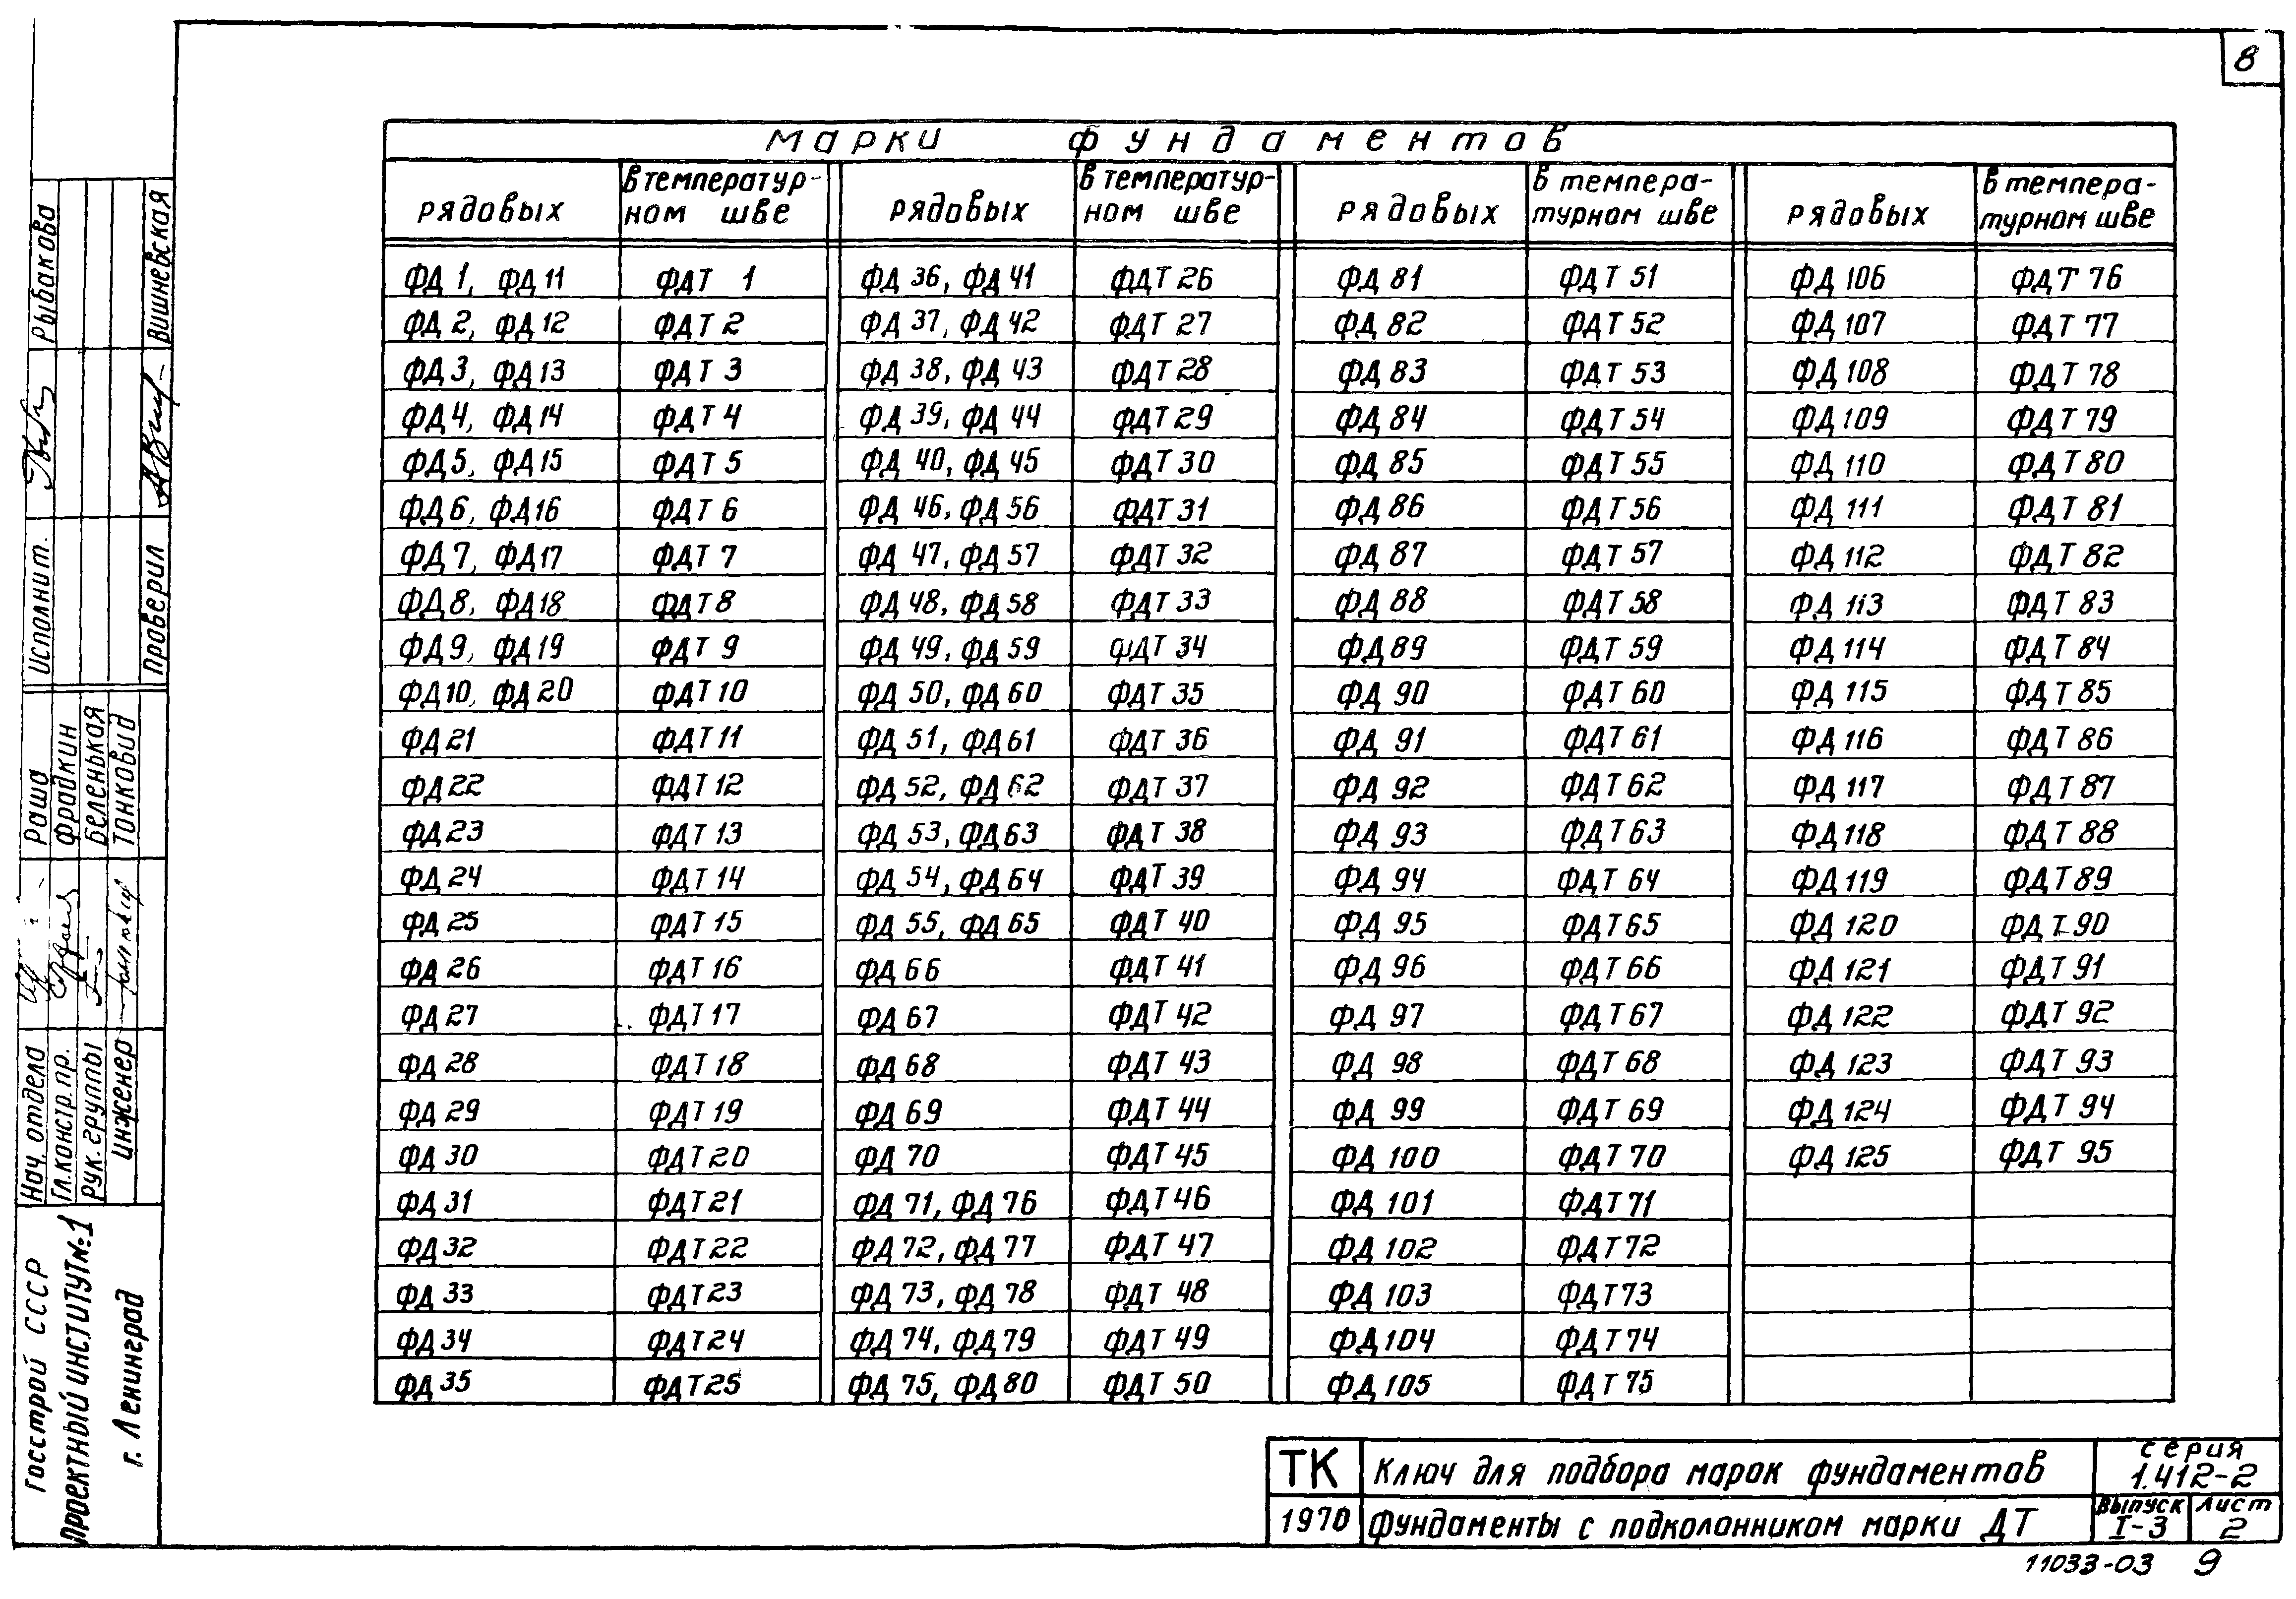 8
Марки фундаментов
рядовых | в температур- ном шве | рядовых | в температур- ном шве | рядовых | в темпера- турном шве | рядовых | в темпера- турном шве
ФД 1, ФД 11 | ФДТ 1 | ФД 36, ФД 41 | ФДТ 26 | ФД 81 | ФДТ 51 | ФД 106 | ФДТ 76
ФД 2, ФД 12 | ФДТ 2 | ФД 37, ФД 42 | ФДТ 27 | ФД 82 | ФДТ 52 | ФД 107 | ФДТ 77
ФД 3, ФД 13 | ФДТ 3 | ФД 38, ФД 43 | ФДТ 28 | ФД 83 | ФДТ 53 | ФД 108 | ФДТ 78
ФД 4, ФД 14 | ФДТ 4 | ФД 39, ФД 44 | ФДТ 29 | ФД 84 | ФДТ 54 | ФД 109 | ФДТ 79
ФД 5, ФД 15 | ФДТ 5 | ФД 40, ФД 45 | ФДТ 30 | ФД 85 | ФДТ 55 | ФД 110 | ФДТ 80
ФД 6, ФД 16 | ФДТ 6 | ФД 46, ФД 56 | ФДТ 31 | ФД 86 | ФДТ 56 | ФД 111 | ФДТ 81
ФД 7, ФД 17 | ФДТ 7 | ФД 47, ФД 57 | ФДТ 32 | ФД 87 | ФДТ 57 | ФД 112 | ФДТ 82
ФД 8, ФД 18 | ФДТ 8 | ФД 48, ФД 58 | ФДТ 33 | ФД 88 | ФДТ 58 | ФД 113 | ФДТ 83
ФД 9, ФД 19 | ФДТ 9 | ФД 49, ФД 59 | ФДТ 34 | ФД 89 | ФДТ 59 | ФД 114 | ФДТ 84
ФД 10, ФД 20 | ФДТ 10 | ФД 50, ФД 60 | ФДТ 35 | ФД 90 | ФДТ 60 | ФД 115 | ФДТ 85
ФД 21 | ФДТ 11 | ФД 51, ФД 61 | ФДТ 36 | ФД 91 | ФДТ 61 | ФД 116 | ФДТ 86
ФД 22 | ФДТ 12 | ФД 52, ФД 62 | ФДТ 37 | ФД 92 | ФДТ 62 | ФД 117 | ФДТ 87
ФД 23 | ФДТ 13 | ФД 53, ФД 63 | ФДТ 38 | ФД 93 | ФДТ 63 | ФД 118 | ФДТ 88
ФД 24 | ФДТ 14 | ФД 54, ФД 64 | ФДТ 39 | ФД 94 | ФДТ 64 | ФД 119 | ФДТ 89
ФД 25 | ФДТ 15 | ФД 55, ФД 65 | ФДТ 40 | ФД 95 | ФДТ 65 | ФД 120 | ФДТ 90
ФД 26 | ФДТ 16 | ФД 66 | ФДТ 41 | ФД 96 | ФДТ 66 | ФД 121 | ФДТ 91
ФД 27 | ФДТ 17 | ФД 67 | ФДТ 42 | ФД 97 | ФДТ 67 | ФД 122 | ФДТ 92
ФД 28 | ФДТ 18 | ФД 68 | ФДТ 43 | ФД 98 | ФДТ 68 | ФД 123 | ФДТ 93
ФД 29 | ФДТ 19 | ФД 69 | ФДТ 44 | ФД 99 | ФДТ 69 | ФД 124 | ФДТ 94
ФД 30 | ФДТ 20 | ФД 70 | ФДТ 45 | ФД 100 | ФДТ 70 | ФД 125 | ФДТ 95
ФД 31 | ФДТ 21 | ФД 71, ФД 76 | ФДТ 46 | ФД 101 | ФДТ 71
ФД 32 | ФДТ 22 | ФД 72, ФД 77 | ФДТ 47 | ФД 102 | ФДТ 72
ФД 33 | ФДТ 23 | ФД 73, ФД 78 | ФДТ 48 | ФД 103 | ФДТ 73
ФД 34 | ФДТ 24 | ФД 74, ФД 79 | ФДТ 49 | ФД 104 | ФДТ 74
ФД 35 | ФДТ 25 | ФД 75, ФД 80 | ФДТ 50 | ФД 105 | ФДТ 75
Госстрой СССР
Проектный институт №1
г. Ленинград
Нач. отдела Раша
Гл. констр. пр. Фрадкин
Рук. группы Беленькая
Инженер Тонковид
Исполнит. Рыбакова
Проверил Вишневская
ТК Ключ для подбора марок фундаментов
серия 1.412-2
1970 Фундаменты с подколонником марки ДТ
Выпуск I-3 Лист 2
11033-03 9